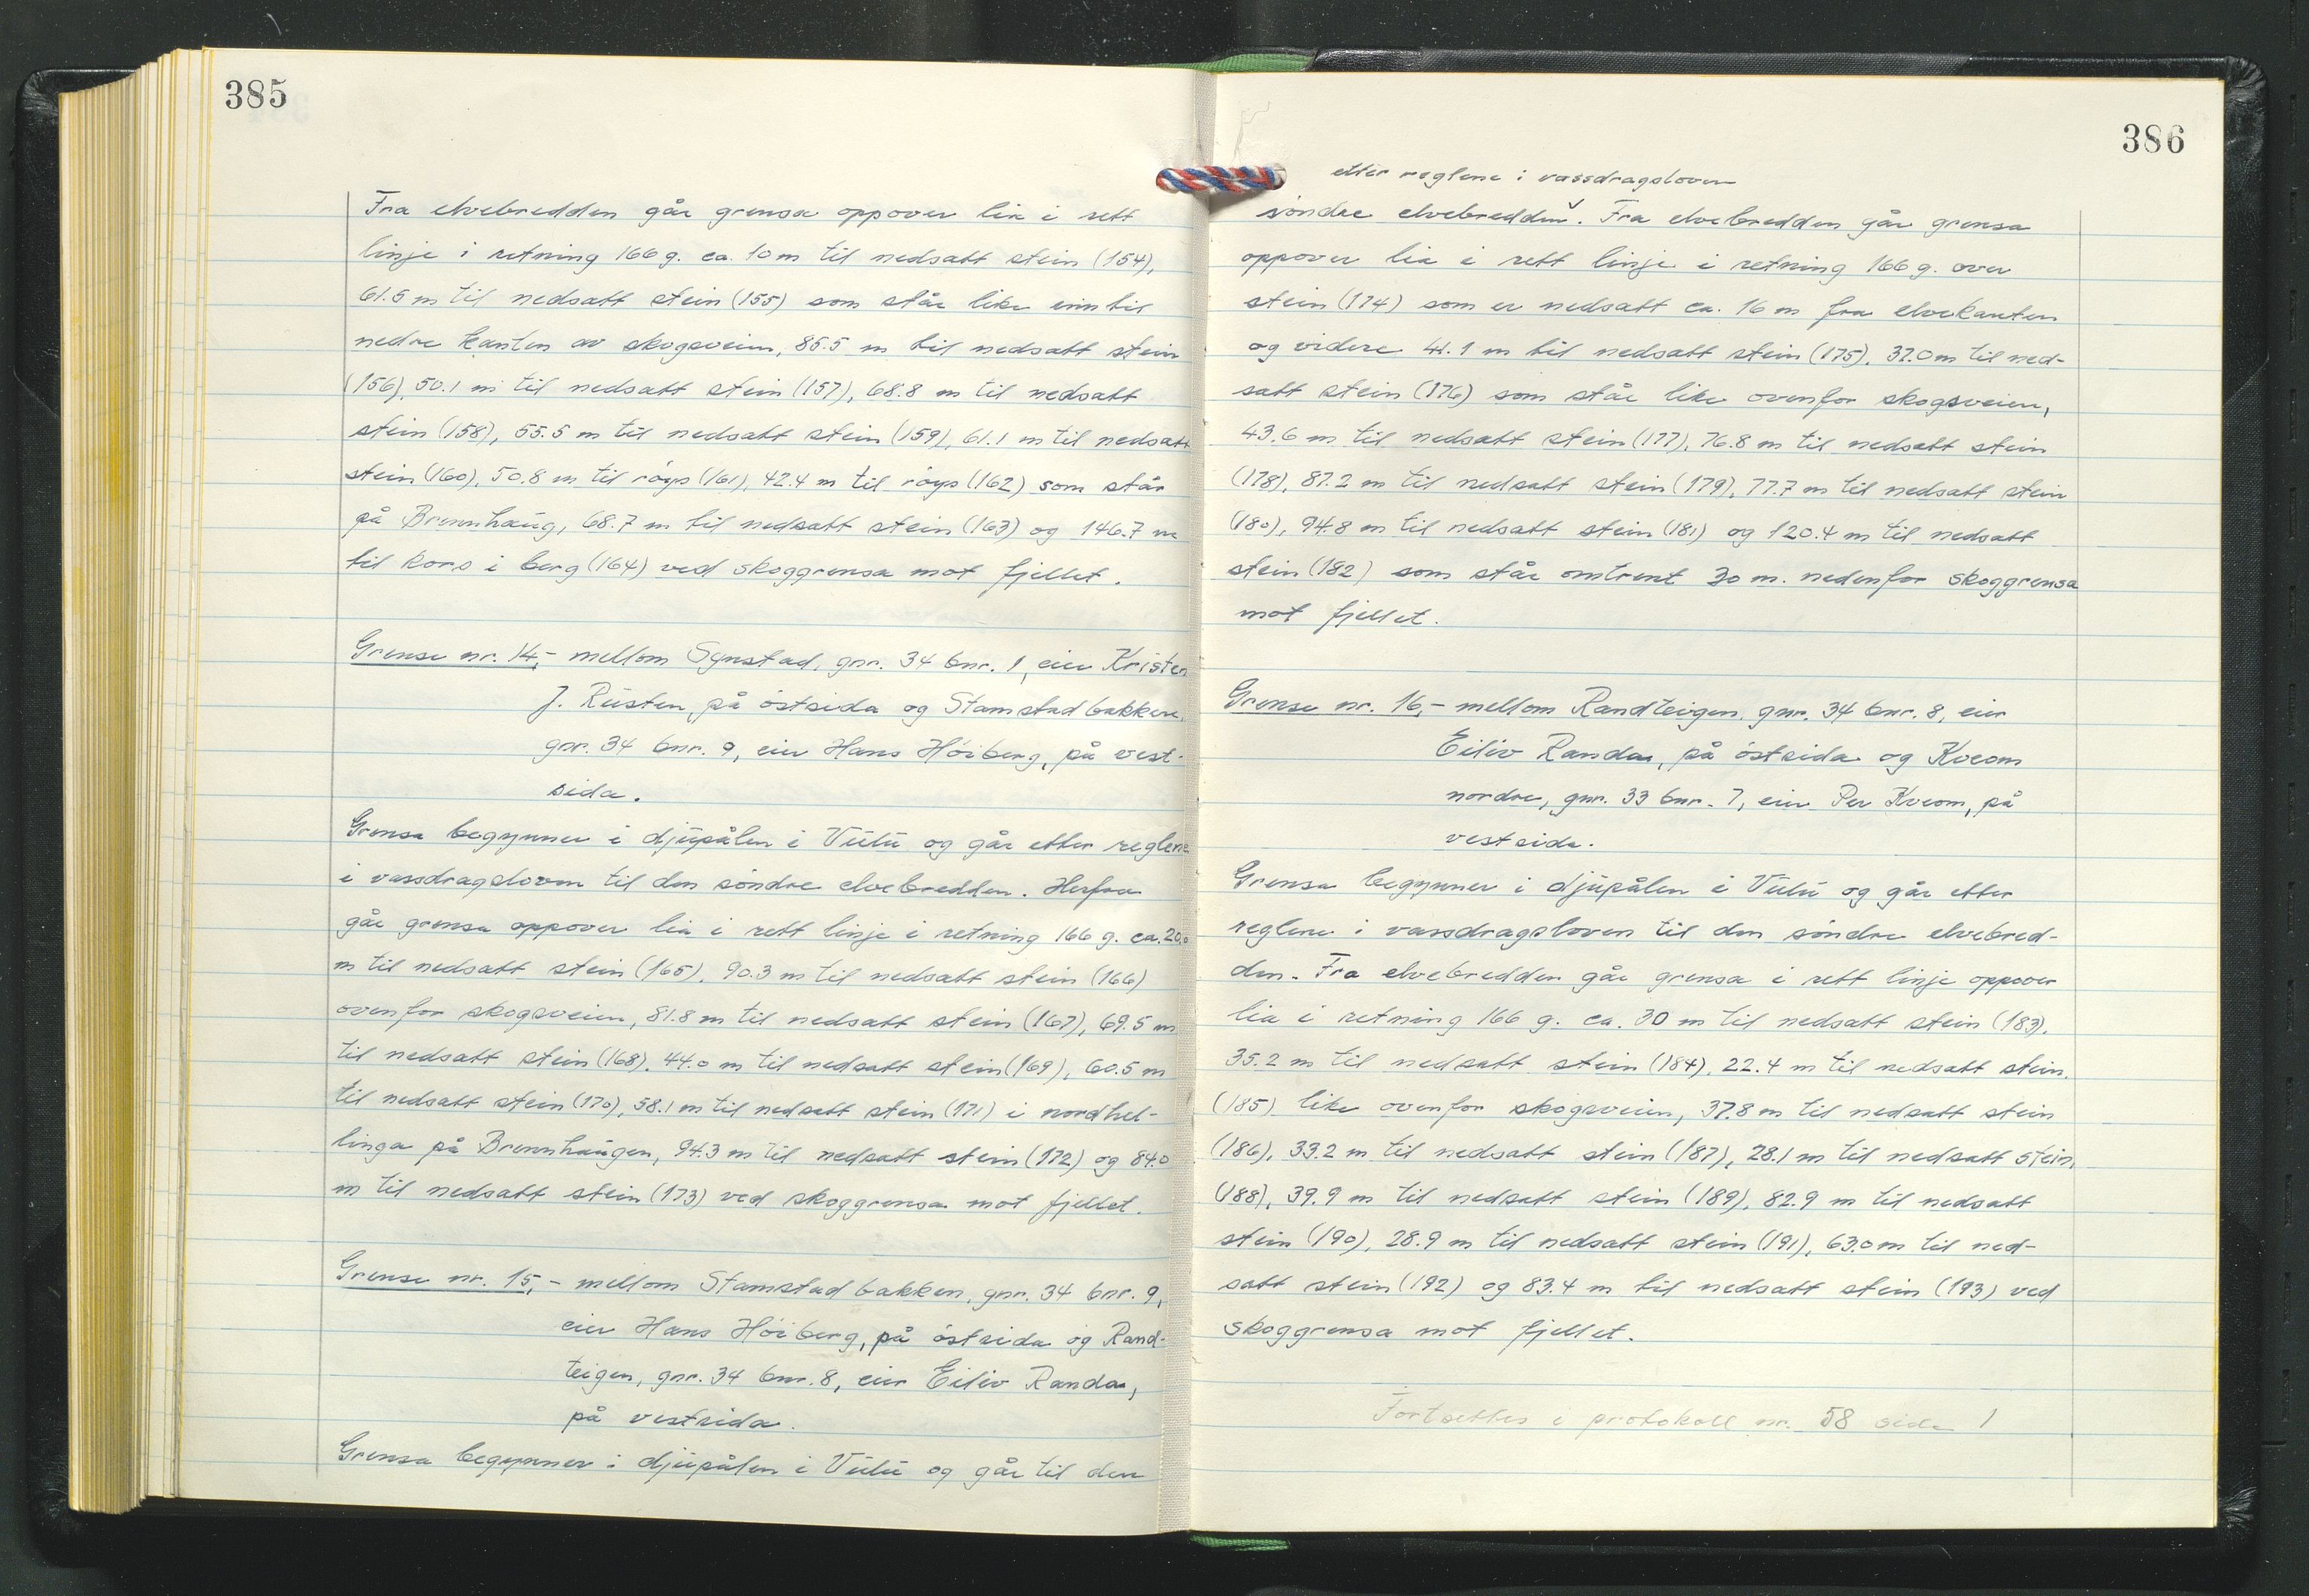 385
Fra elvebredden går grensa oppover lia i rett
linje i retning 166 g. ca. 10 m til nedsatt stein (154),
61.5 m til nedsatt stein (155) som står like inntil
nedre kanten av skogsveien, 85.5 m til nedsatt stein
(156), 50.1 m til nedsatt stein (157), 68.8 m til nedsatt
stein (158), 55.5 m til nedsatt stein (159), 61.1 m til nedsatt
stein (160), 50.8 m til röys (161), 42.4 m til röys (162) som står
på Brennhaug, 68.7 m til nedsatt stein (163) og 146.7 m
til kors i berg (164) ved skoggrensa mot fjellet.
Grense nr. 14,- mellom Synstad, gnr. 34 bnr. 1, eier Kristen
J. Rusten, på östsida og Stamstadbakken,
gnr. 34 bnr. 9, eier Hans Höiberg, på vest-
sida.
Grensa begynner i djupålen i Vulu og går etter reglene
i vassdragsloven til den söndre elvebredden. Herfra
går grensa oppover lia i rett linje i retning 166 g. ca. 20.0
m til nedsatt stein (165), 90.3 m til nedsatt stein (166)
ovenfor skogsveien, 81.8 m til nedsatt stein (167), 69.5 m
til nedsatt stein (168), 44.0 m til nedsatt stein (169), 60.5 m
til nedsatt stein (170), 58.1 m til nedsatt stein (171) i nordhel-
linga på Brennhaugen, 94.3 m til nedsatt stein (172) og 84.0
m til nedsatt stein (173) ved skoggrensa mot fjellet.
Grense nr. 15,- mellom Stamstadbakken, gnr. 34 bnr. 9,
eier Hans Höiberg, på östsida og Rand-
teigen, gnr. 34 bnr. 8, eier Eiliv Randen,
på vestsida.
Grensa begynner i djupålen i Vulu og går til den
386
etter reglene i vassdragsloven
söndre elvebredden ˇ. Fra elvebredden går grensa
oppover lia i rett linje i retning 166 g. over
stein (174) som er nedsatt ca. 16 m fra elvekanten
og videre 41.1 m til nedsatt stein (175), 37.0 m til ned-
satt stein (176) som står like ovenfor skogsveien,
43.6 m til nedsatt stein (177), 76.8 m til nedsatt stein
(178), 87.2 m til nedsatt stein (179), 77.7 m til nedsatt stein
(180), 94.8 m til nedsatt stein (181) og 120.4 m til nedsatt
stein (182) som står omtrent 30 m. nedenfor skoggrensa
mot fjellet.
Grense nr. 16,- mellom Randteigen, gnr. 34 bnr. 8, eier
Eiliv Randen, på östsida og Kveom
nordre, gnr. 33 bnr. 7, eier Per Kveom, på
vestsida.
Grensa begynner i djupålen i Vulu og går etter
reglene i vassdragsloven til den söndre elvebred-
den. Fra elvebredden går grensa i rett linje oppover
lia i retning 166 g. ca. 30 m til nedsatt stein (183),
35.2 m til nedsatt stein (184), 22.4 m til nedsatt stein
(185) like ovenfor skogsveien, 37.8 m til nedsatt stein
(186), 33.2 m til nedsatt stein (187), 28.1 m til nedsatt stein
(188), 39.9 m til nedsatt stein (189), 82.9 m til nedsatt
stein (190), 28.9 m til nedsatt stein (191), 63.0 m til ned-
satt stein (192) og 83.4 m til nedsatt stein (193) ved
skoggrensa mot fjellet.
Fortsettes i protokoll nr. 58 side 1